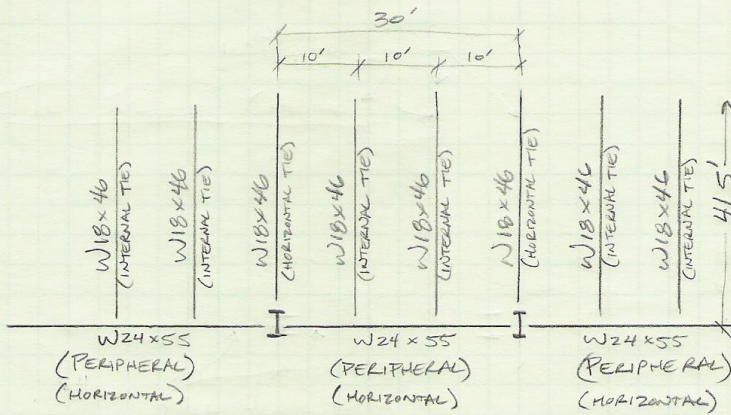 30'
10' 10' 10'
W18×46
(INTERNAL TIE)
W18×46
(INTERNAL TIE)
W18×46
(HORIZONTAL TIE)
W18×46
(INTERNAL TIE)
W18×46
(INTERNAL TIE)
W18×46
(HORIZONTAL TIE)
W18×46
(INTERNAL TIE)
W18×46
(INTERNAL TIE)
W24×55
(PERIPHERAL)
(HORIZONTAL)
W24×55
(PERIPHERAL)
(HORIZONTAL)
W24×55
(PERIPHERAL)
(HORIZONTAL)